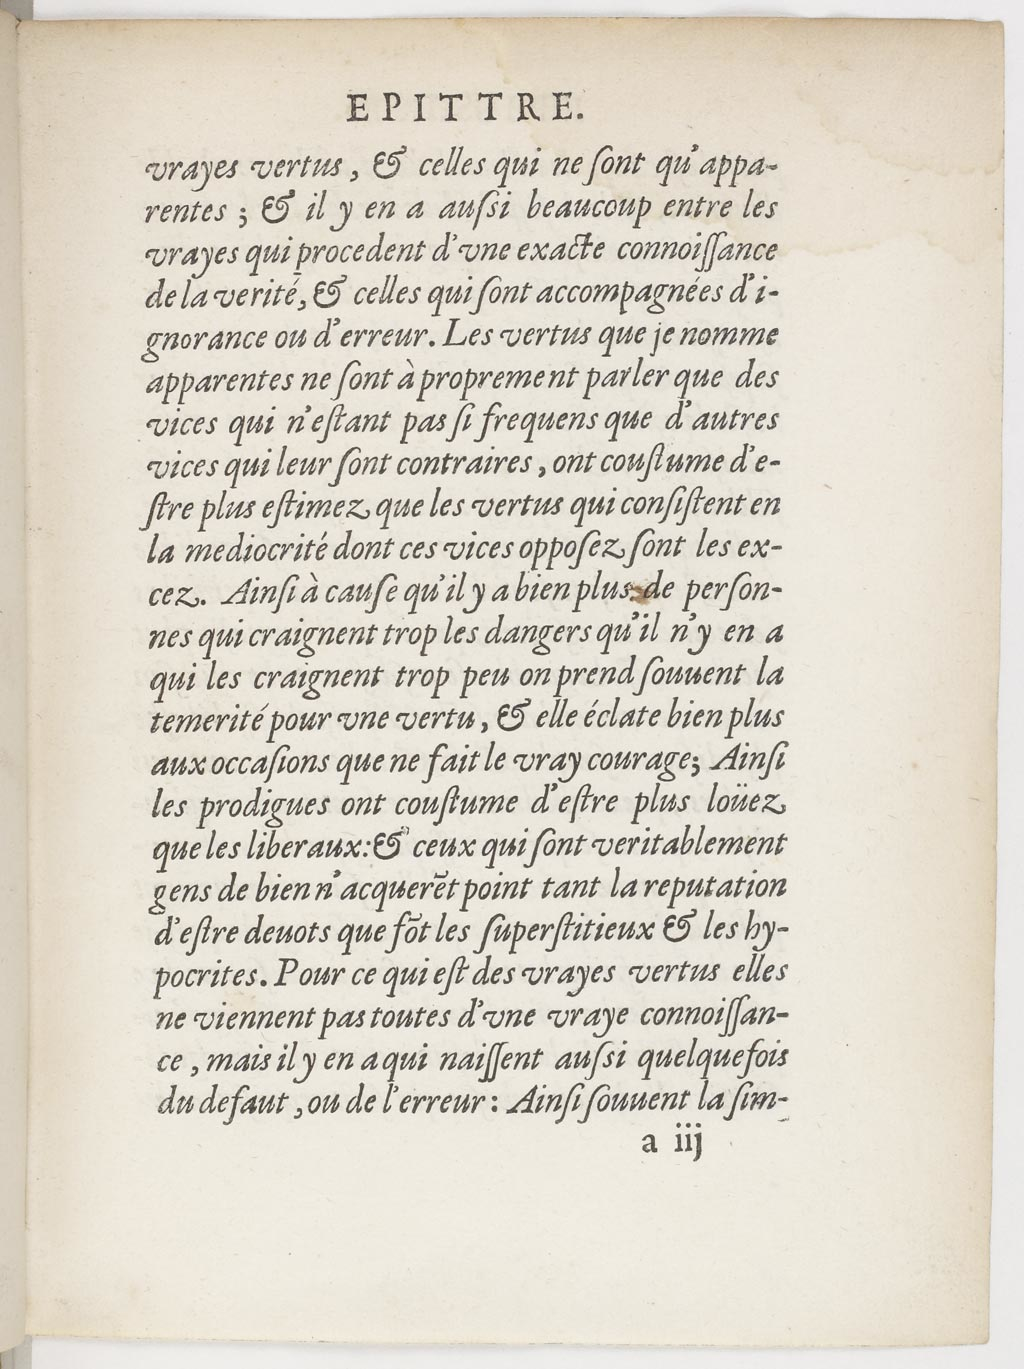 EPITTRE.
vrayes vertus, & celles qui ne ſont qu'appa-
rentes ; & il y en a auſsi beaucoup entre les
vrayes qui procedent d'vne exacte connoiſſance
de la verité, & celles qui ſont accompagnées d'i-
gnorance ou d'erreur. Les vertus que je nomme
apparentes ne ſont à proprement parler que des
vices qui n'eſtant pas ſi frequens que d'autres
vices qui leur ſont contraires, ont couſtume d'e-
ſtre plus eſtimez que les vertus qui conſiſtent en
la mediocrité dont ces vices oppoſez ſont les ex-
cez. Ainſi à cauſe qu'il y a bien plus de perſon-
nes qui craignent trop les dangers qu'il n'y en a
qui les craignent trop peu on prend ſouuent la
temerité pour vne vertu, & elle éclate bien plus
aux occaſions que ne fait le vray courage; Ainſi
les prodigues ont couſtume d'eſtre plus loüez
que les liberaux: & ceux qui ſont veritablement
gens de bien n'acquerẽt point tant la reputation
d'eſtre deuots que fõt les ſuperſtitieux & les hy-
pocrites. Pour ce qui eſt des vrayes vertus elles
ne viennent pas toutes d'vne vraye connoiſſan-
ce, mais il y en a qui naiſſent auſsi quelquefois
du defaut, ou de l'erreur: Ainſi ſouuent la ſim-
a iij